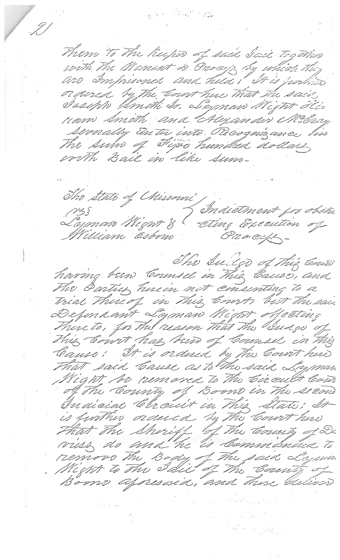 2
them to the Keeper of said Jail together
with the Warrant & Process by which they
are Imprisoned and held; It is further
ordered by the Court here that the said
Joseph Smith Jr. Lyman Wight Hi-
ram Smith and Alexander McCray
severally enter into Recognizance in
the sum of five hundred dollars
with Bail in like sum-
The State of Missouri
vs
Lyman Wight &
William Osbone
Indictment for obstru-
cting Execution of
Process-
The Judge of this Court
having been Counsel in this Cause, and
the Parties herein not consenting to a
trial thereof in this Court; but the said
Defendant Lyman Wight objecting
thereto, for the reason that the Judge of
this Court has been of Counsel in this
Cause: It is ordered by the Court here
that said Cause as to the said Lyman
Wight be removed to the Circuit Court
of the County of Boone in the second
Judicial Circuit in this State: It
is further ordered by the Court here
that the Sheriff of the County of Da
viess do and he is Commanded to
remove the Body of the said Lyman
Wight to the Jail of the County of
Boone aforesaid, and there deliver